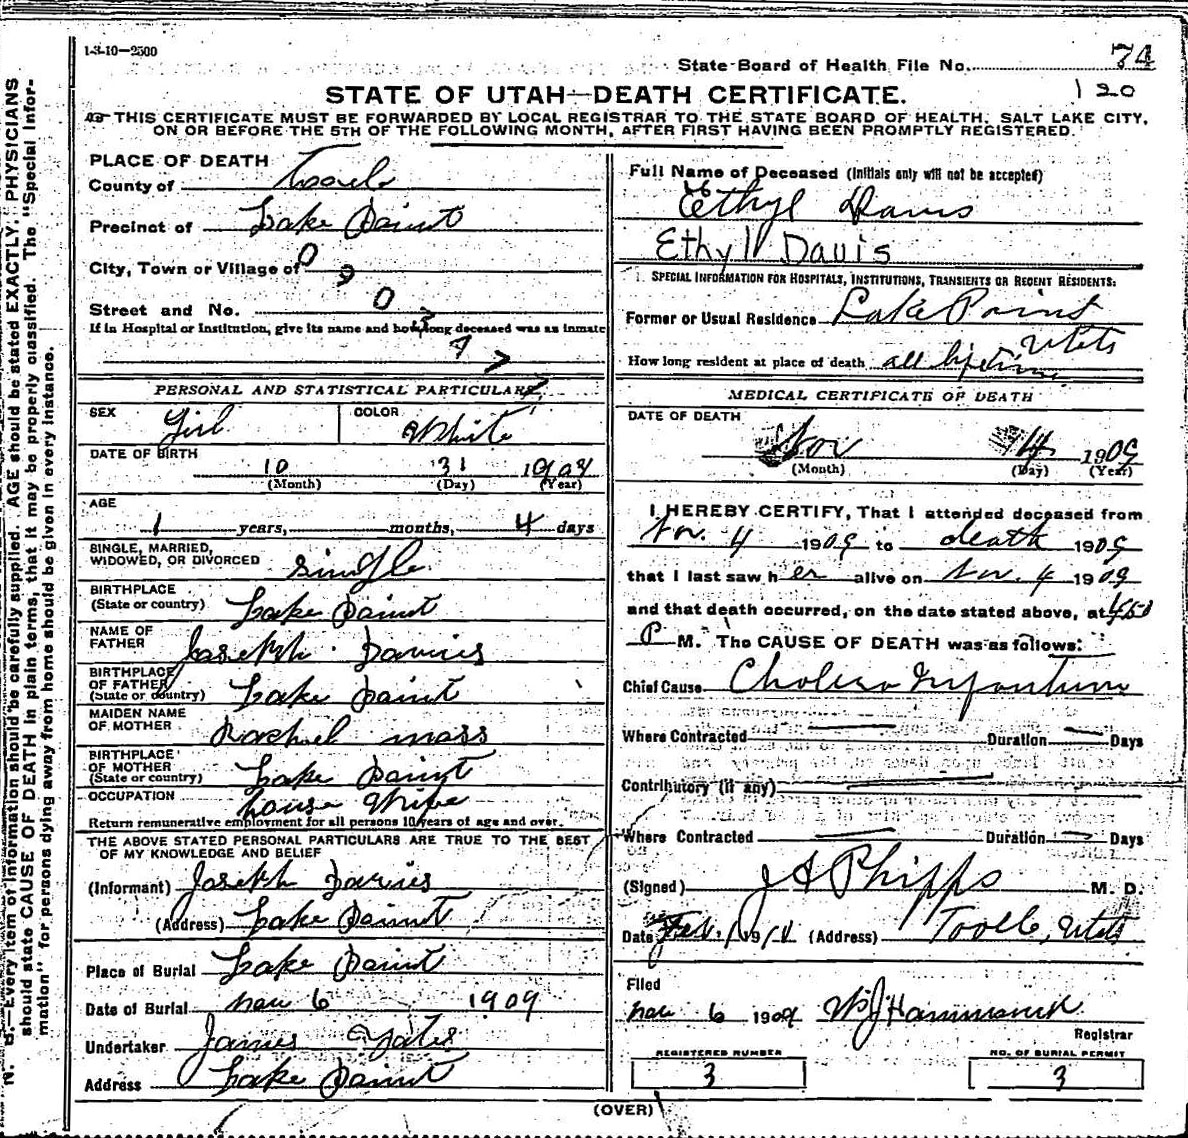 1-3-10-2500
State Board of Health File No. 74
120
STATE OF UTAH—DEATH CERTIFICATE.
THIS CERTIFICATE MUST BE FORWARDED BY LOCAL REGISTRAR TO THE STATE BOARD OF HEALTH, SALT LAKE CITY,
ON OR BEFORE THE 5TH OF THE FOLLOWING MONTH, AFTER FIRST HAVING BEEN PROMPTLY REGISTERED.
N. B.—Every item of information should be carefully supplied. AGE should be stated EXACTLY. PHYSICIANS
should state CAUSE OF DEATH in plain terms, that it may be properly classified. The "Special Infor-
mation" for persons dying away from home should be given in every instance.
PLACE OF DEATH
County of
Precinct of Lake Point
City, Town or Village of
Street and No.
If in Hospital or Institution, give its name and how long deceased was an inmate
PERSONAL AND STATISTICAL PARTICULARS
SEX Girl COLOR White
DATE OF BIRTH
10 31 1908
(Month) (Day) (Year)
AGE
1 years, months, 4 days
SINGLE, MARRIED,
WIDOWED, OR DIVORCED single
BIRTHPLACE
(State or country) Lake Point
NAME OF
FATHER Joseph
BIRTHPLACE
OF FATHER
(State or country) Lake Point
MAIDEN NAME
OF MOTHER Rachel moss
BIRTHPLACE
OF MOTHER
(State or country) Lake Point
OCCUPATION house Wife
Return remunerative employment for all persons 10 years of age and over.
THE ABOVE STATED PERSONAL PARTICULARS ARE TRUE TO THE BEST
OF MY KNOWLEDGE AND BELIEF
(Informant) Joseph
(Address) Lake Point
Place of Burial Lake Point
Date of Burial nov 6 1909
Undertaker James Yates
Address Lake Point
Full Name of Deceased (Initials only will not be accepted)
Ethyl Davis
Ethyl Davis
SPECIAL INFORMATION FOR HOSPITALS, INSTITUTIONS, TRANSIENTS OR RECENT RESIDENTS:
Former or Usual Residence Lake Point
Utah
How long resident at place of death all lifetime
MEDICAL CERTIFICATE OF DEATH
DATE OF DEATH
Nov 4 1909
(Month) (Day) (Year)
I HEREBY CERTIFY, That I attended deceased from
Nov. 4 1909 to death 1909
that I last saw her alive on Nov. 4 1909
and that death occurred, on the date stated above, at 450
P M. The CAUSE OF DEATH was as follows:
Chief Cause Cholera Infantum
Where Contracted Duration Days
Contributory (if any)
Where Contracted Duration Days
(Signed) J A Phipps M. D.
Date Feb. 1 1910 (Address) Tooele, Utah
Filed
nov 6 1909 W J Hammond
Registrar
REGISTERED NUMBER
3
NO. OF BURIAL PERMIT
3
(OVER)